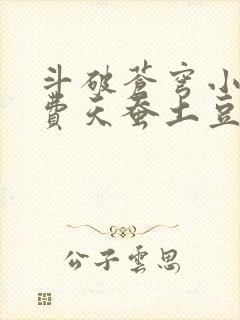 斗破苍穹小
费天蚕土豆
公子云思